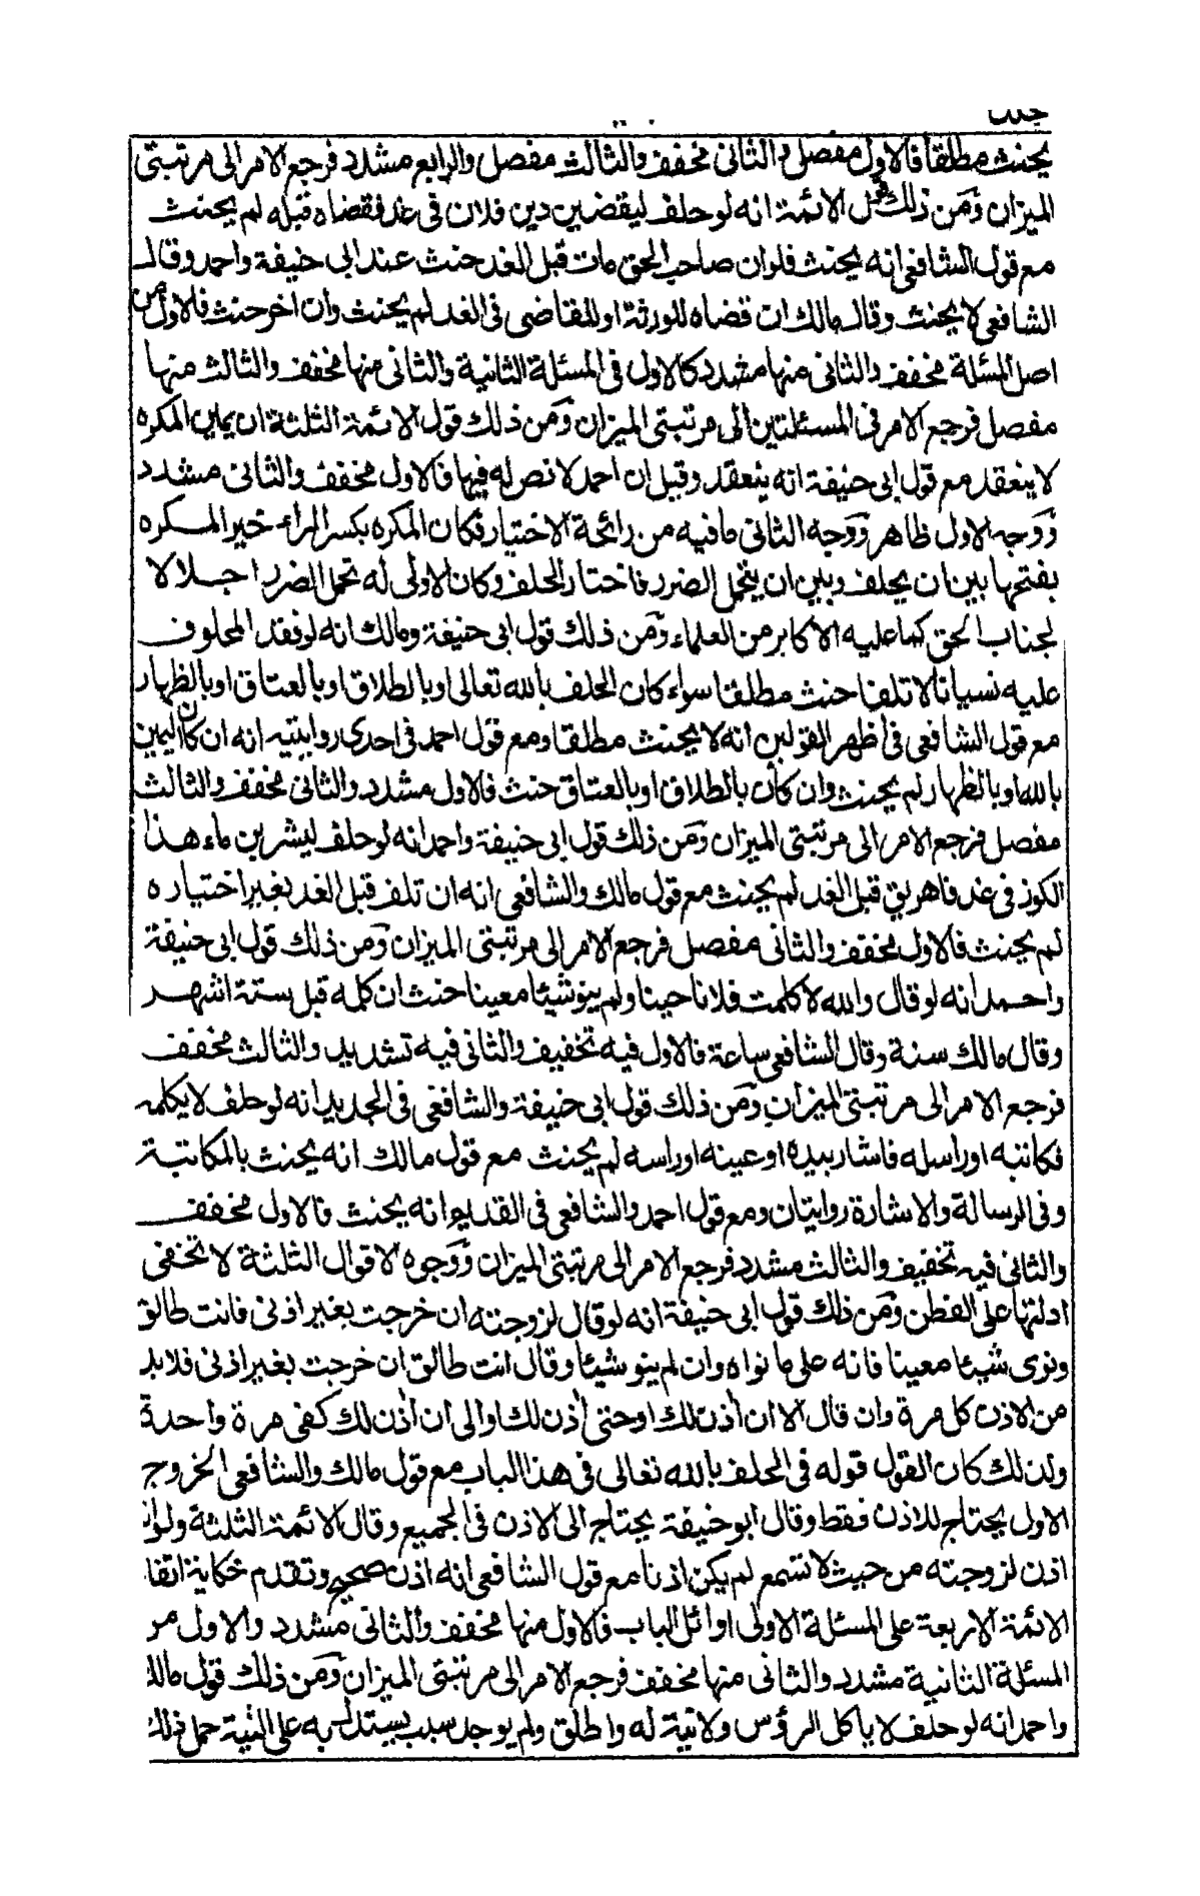 يحنث مطلقا فالاول مفصل والثانى مخفف والثالث مفصل والرابع مشدد فرجع الامر الى مرتبتى
الميزان ومن ذلك قول الائمة انه لو حلف ليقضين دين فلان فى غد فقضاه قبله لم يحنث
مع قول الشافعى انه يحنث فلو ان صاحب الحق مات قبل الغد حنث عند ابى حنيفة واحمد وقال
الشافعى لا يحنث وقال مالك ان قضاه للورثة او للقاضى فى الغد لم يحنث وان اخر حنث فالاول من
اصل المسئلة مخفف والثانى منها مشدد كالاول فى المسئلة الثانية والثانى منها مخفف والثالث منها
مفصل فرجع الامر فى المسئلتين الى مرتبتى الميزان ومن ذلك قول الائمة الثلثة ان يمين المكره
لا ينعقد مع قول ابى حنيفة انه ينعقد وقيل ان احمد لا نص له فيها فالاول مخفف والثانى مشدد
ووجه الاول ظاهر ووجه الثانى ما فيه من رائحة الاختيار فكان المكره بكسر الراء خير المسكره
بفتحها بين ان يحلف وبين ان يتحمل الضرر فاختار الحلف وكان الاولى له تحمل الضرر اجلالا
لجناب الحق كما عليه الاكابر من العلماء ومن ذلك قول ابى حنيفة ومالك انه لو فقد المحلوف
عليه نسيانا لا تلفا حنث مطلقا سواء كان الحلف بالله تعالى او بالطلاق او بالعتاق او بالظهار
مع قول الشافعى فى اظهر القولين انه لا يحنث مطلقا ومع قول احمد فى احدى روايتيه انه ان كان اليمين
بالله او بالظهار لم يحنث وان كان بالطلاق او بالعتاق حنث فالاول مشدد والثانى مخفف والثالث
مفصل فرجع الامر الى مرتبتى الميزان ومن ذلك قول ابى حنيفة واحمد انه لو حلف ليشربن ماء هذا
الكوز فى غد فاهريق قبل الغد لم يحنث مع قول مالك والشافعى انه ان تلف قبل الغد بغير اختياره
لم يحنث فالاول مخفف والثانى مفصل فرجع الامر الى مرتبتى الميزان ومن ذلك قول ابى حنيفة
واحمد انه لو قال والله لا كلمت فلانا حينا ولم ينو شيئا معينا حنث ان كلمه قبل ستة اشهر
وقال مالك سنة وقال الشافعى ساعة فالاول فيه تخفيف والثانى فيه تشديد والثالث مخفف
فرجع الامر الى مرتبتى الميزان ومن ذلك قول ابى حنيفة والشافعى فى الجديد انه لو حلف لا يكلمه
فكاتبه او راسله فاشار بيده او عينه او راسه لم يحنث مع قول مالك انه يحنث بالمكاتبة
وفى الرسالة والاشارة روايتان ومع قول احمد والشافعى فى القديم انه يحنث فالاول مخفف
والثانى فيه تخفيف والثالث مشدد فرجع الامر الى مرتبتى الميزان ووجوه الاقوال الثلثة لا تخفى
ادلتها على الفطن ومن ذلك قول ابى حنيفة انه لو قال لزوجته ان خرجت بغير اذنى فانت طالق
ونوى شيئا معينا فانه على ما نواه وان لم ينو شيئا وقال انت طالق ان خرجت بغير اذنى فلا بد
من الاذن كل مرة وان قال الا ان أذن لك او حتى أذن لك او الى ان أذن لك كفى مرة واحدة
ولذلك كان القول قوله فى الحلف بالله تعالى فى هذا الباب مع قول مالك والشافعى الخروج
الاول يحتاج للاذن فقط وقال ابو حنيفة يحتاج الى الاذن فى الجميع وقال الائمة الثلثة ولو ان
اذن لزوجته من حيث لا تسمع لم يكن اذنا مع قول الشافعى انه اذن صحيح وتقدم حكاية اتفا
الائمة الاربعة على المسئلة الاولى اوائل الباب فالاول منها مخفف والثانى مشدد والاول من
المسئلة الثانية مشدد والثانى منها مخفف فرجع الامر الى مرتبتى الميزان ومن ذلك قول مالك
واحمد انه لو حلف لا ياكل الرؤس ولا نية له واطلق ولم يوجد سبب يستدل به على النية حمل ذلك